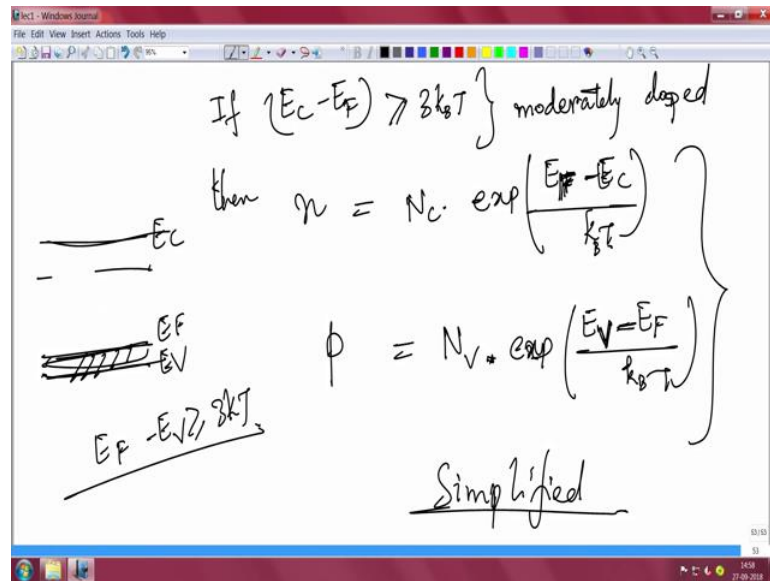 lec1 - Windows Journal
File Edit View Insert Actions Tools Help
If (E_C - E_F) ⩾ 3k_BT } moderately doped
then n = N_C. exp((E_F - E_C)/(k_BT))
E_C
E_F
E_V
p = N_V. exp((E_V - E_F)/(k_BT))
E_F - E_V ⩾ 3kT
Simplified
53/53
53
14:58
27-09-2018